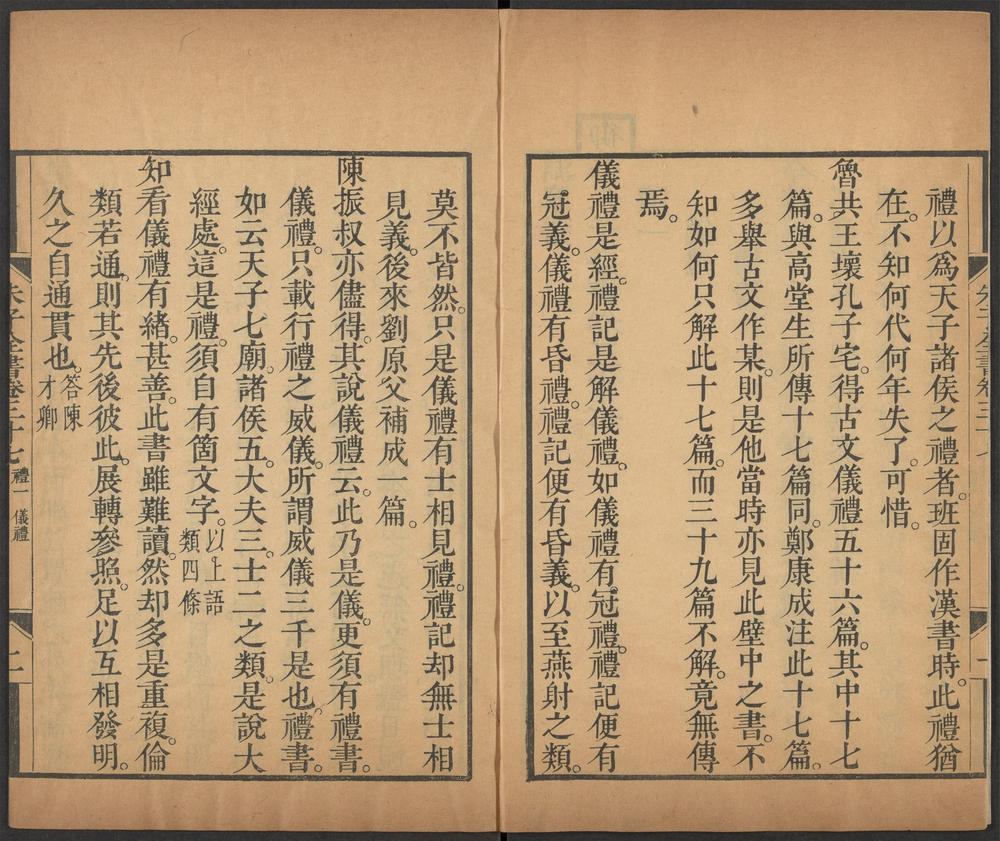 禮以爲天子諸侯之禮者。班固作漢書時。此禮猶
在。不知何代何年失了。可惜。
魯共王壞孔子宅。得古文儀禮五十六篇。其中十七
篇。與高堂生所傳十七篇同。鄭康成注此十七篇。
多舉古文作某。則是他當時亦見此壁中之書。不
知如何只解此十七篇。而三十九篇不解。竟無傳
焉。
儀禮是經。禮記是解儀禮。如儀禮有冠禮。禮記便有
冠義。儀禮有昏禮。禮記便有昏義。以至燕射之類。
莫不皆然。只是儀禮有士相見禮。禮記却無士相
見義。後來劉原父補成一篇。
陳振叔亦儘得。其說儀禮云。此乃是儀。更須有禮書。
儀禮。只載行禮之威儀。所謂威儀三千是也。禮書。
如云天子七廟。諸侯五。大夫三。士二之類。是說大
經處。這是禮。須自有箇文字。以上語類四條
知看儀禮有緒。甚善。此書雖難讀。然却多是重複。倫
類若通。則其先後彼此。展轉參照。足以互相發明。
久之自通貫也。答陳才卿
朱子全書卷三十七 禮一 儀禮
二